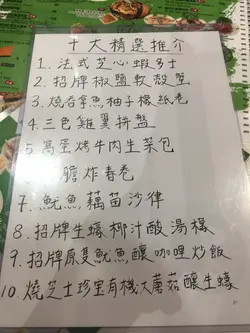 十大精選推介
1. 法式芝心蝦多士
2. 招牌椒鹽軟殼蟹
3. 燒吞拿魚柚子檬紙卷
4. 三色雞翼拼盤
5. 窩蛋烤牛肉生菜包
膽炸春卷
7. 魷魚藕苗沙律
8. 招牌生蠔椰汁酸湯檬
9. 招牌原隻魷魚釀咖喱炒飯
10. 燒芝士珍寶有機大蘑菇釀生蠔